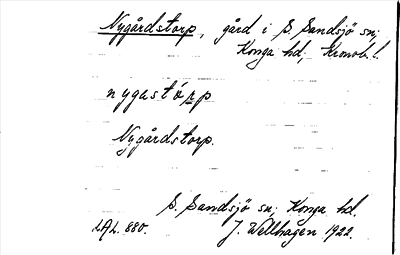 Nygårdstorp, gård i S. Sandsjö sn;
Konga hd; Kronob. l.
nygastórp
Nygårdstorp.
S. Sandsjö sn; Konga hd.
LAL. 880. J. Wellhagen 1922.